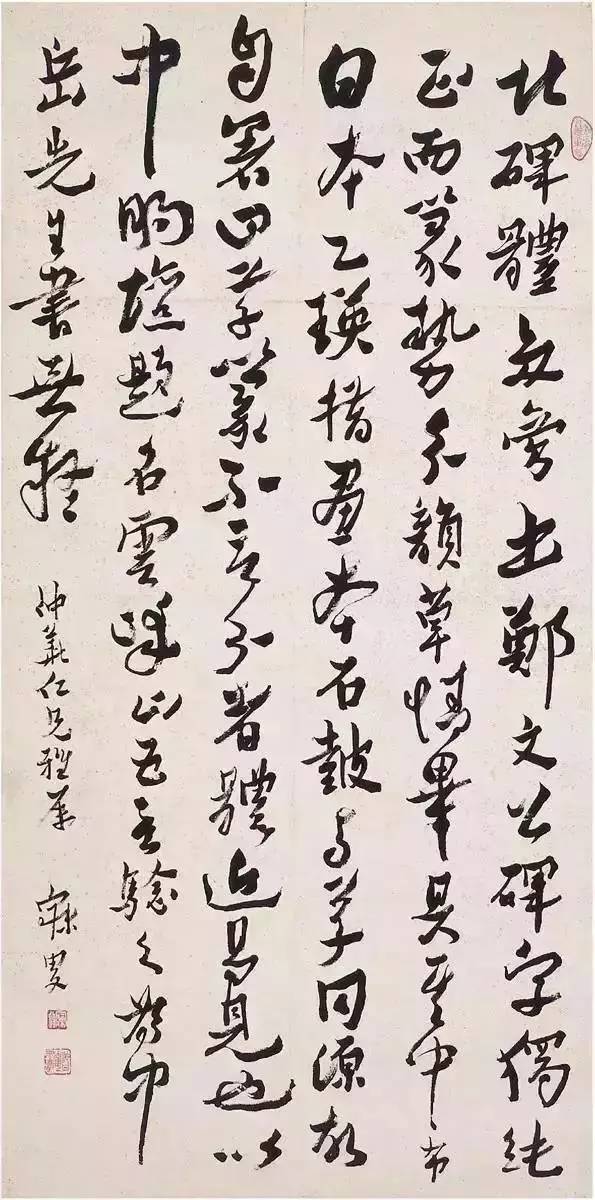 北碑體多旁出鄭文公碑字獨純
正而篆勢分韻草情畢具其中布
白本乙瑛措畫本石鼓與草同源故
自署曰草篆不言分者體近易見也以
中明壇題名雲峰山五言驗之為中
岳先生書無疑
仲仁兄雅屬
寐叟